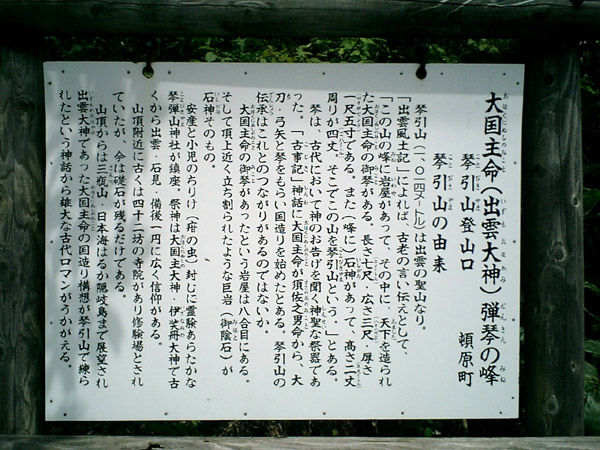 大国主命（出雲大神）弾琴の峰
琴引山登山口
頓原町
琴引山の由来
琴引山（一、〇一四メートル）は出雲の聖山なり。
「出雲風土記」によれば、古老の言い伝えとして、
「この山の峰に岩屋があって、その中に、天下を造られ
た大国主命の御琴がある。長さ七尺、広さ三尺、厚さ
一尺五寸である。また（峰に）石神があって、高さ二丈
周りが四丈。そこでこの山を琴引山という。」とある。
琴は、古代において神のお告げを聞く神聖な祭器であ
った。「古事記」神話に大国主命が須佐之男命から、大
刀、弓矢と琴をもらい国造りを始めたとある。琴引山の
伝承はこれとのつながりがあるのではないか。
大国主命の御琴があったという岩屋は八合目にある。
そして頂上近く立ち割られたような巨岩（御陰石）が
石神そのもの。
安産と小児のちりけ（疳の虫）封じに霊験あらたかな
琴弾山神社が鎮座、祭神は大国主大神・伊弉冊大神で古
くから出雲・石見・備後一円に広く信仰がある。
山頂附近に古くは四十二坊の寺院があり修験場とされ
ていたが、今は礎石が残るだけである。
山頂からは三瓶山、日本海はるか隠岐島まで展望され
出雲大神であった大国主命の国造り構想が琴引山で練ら
れたという神話から雄大な古代ロマンがうかがえる。